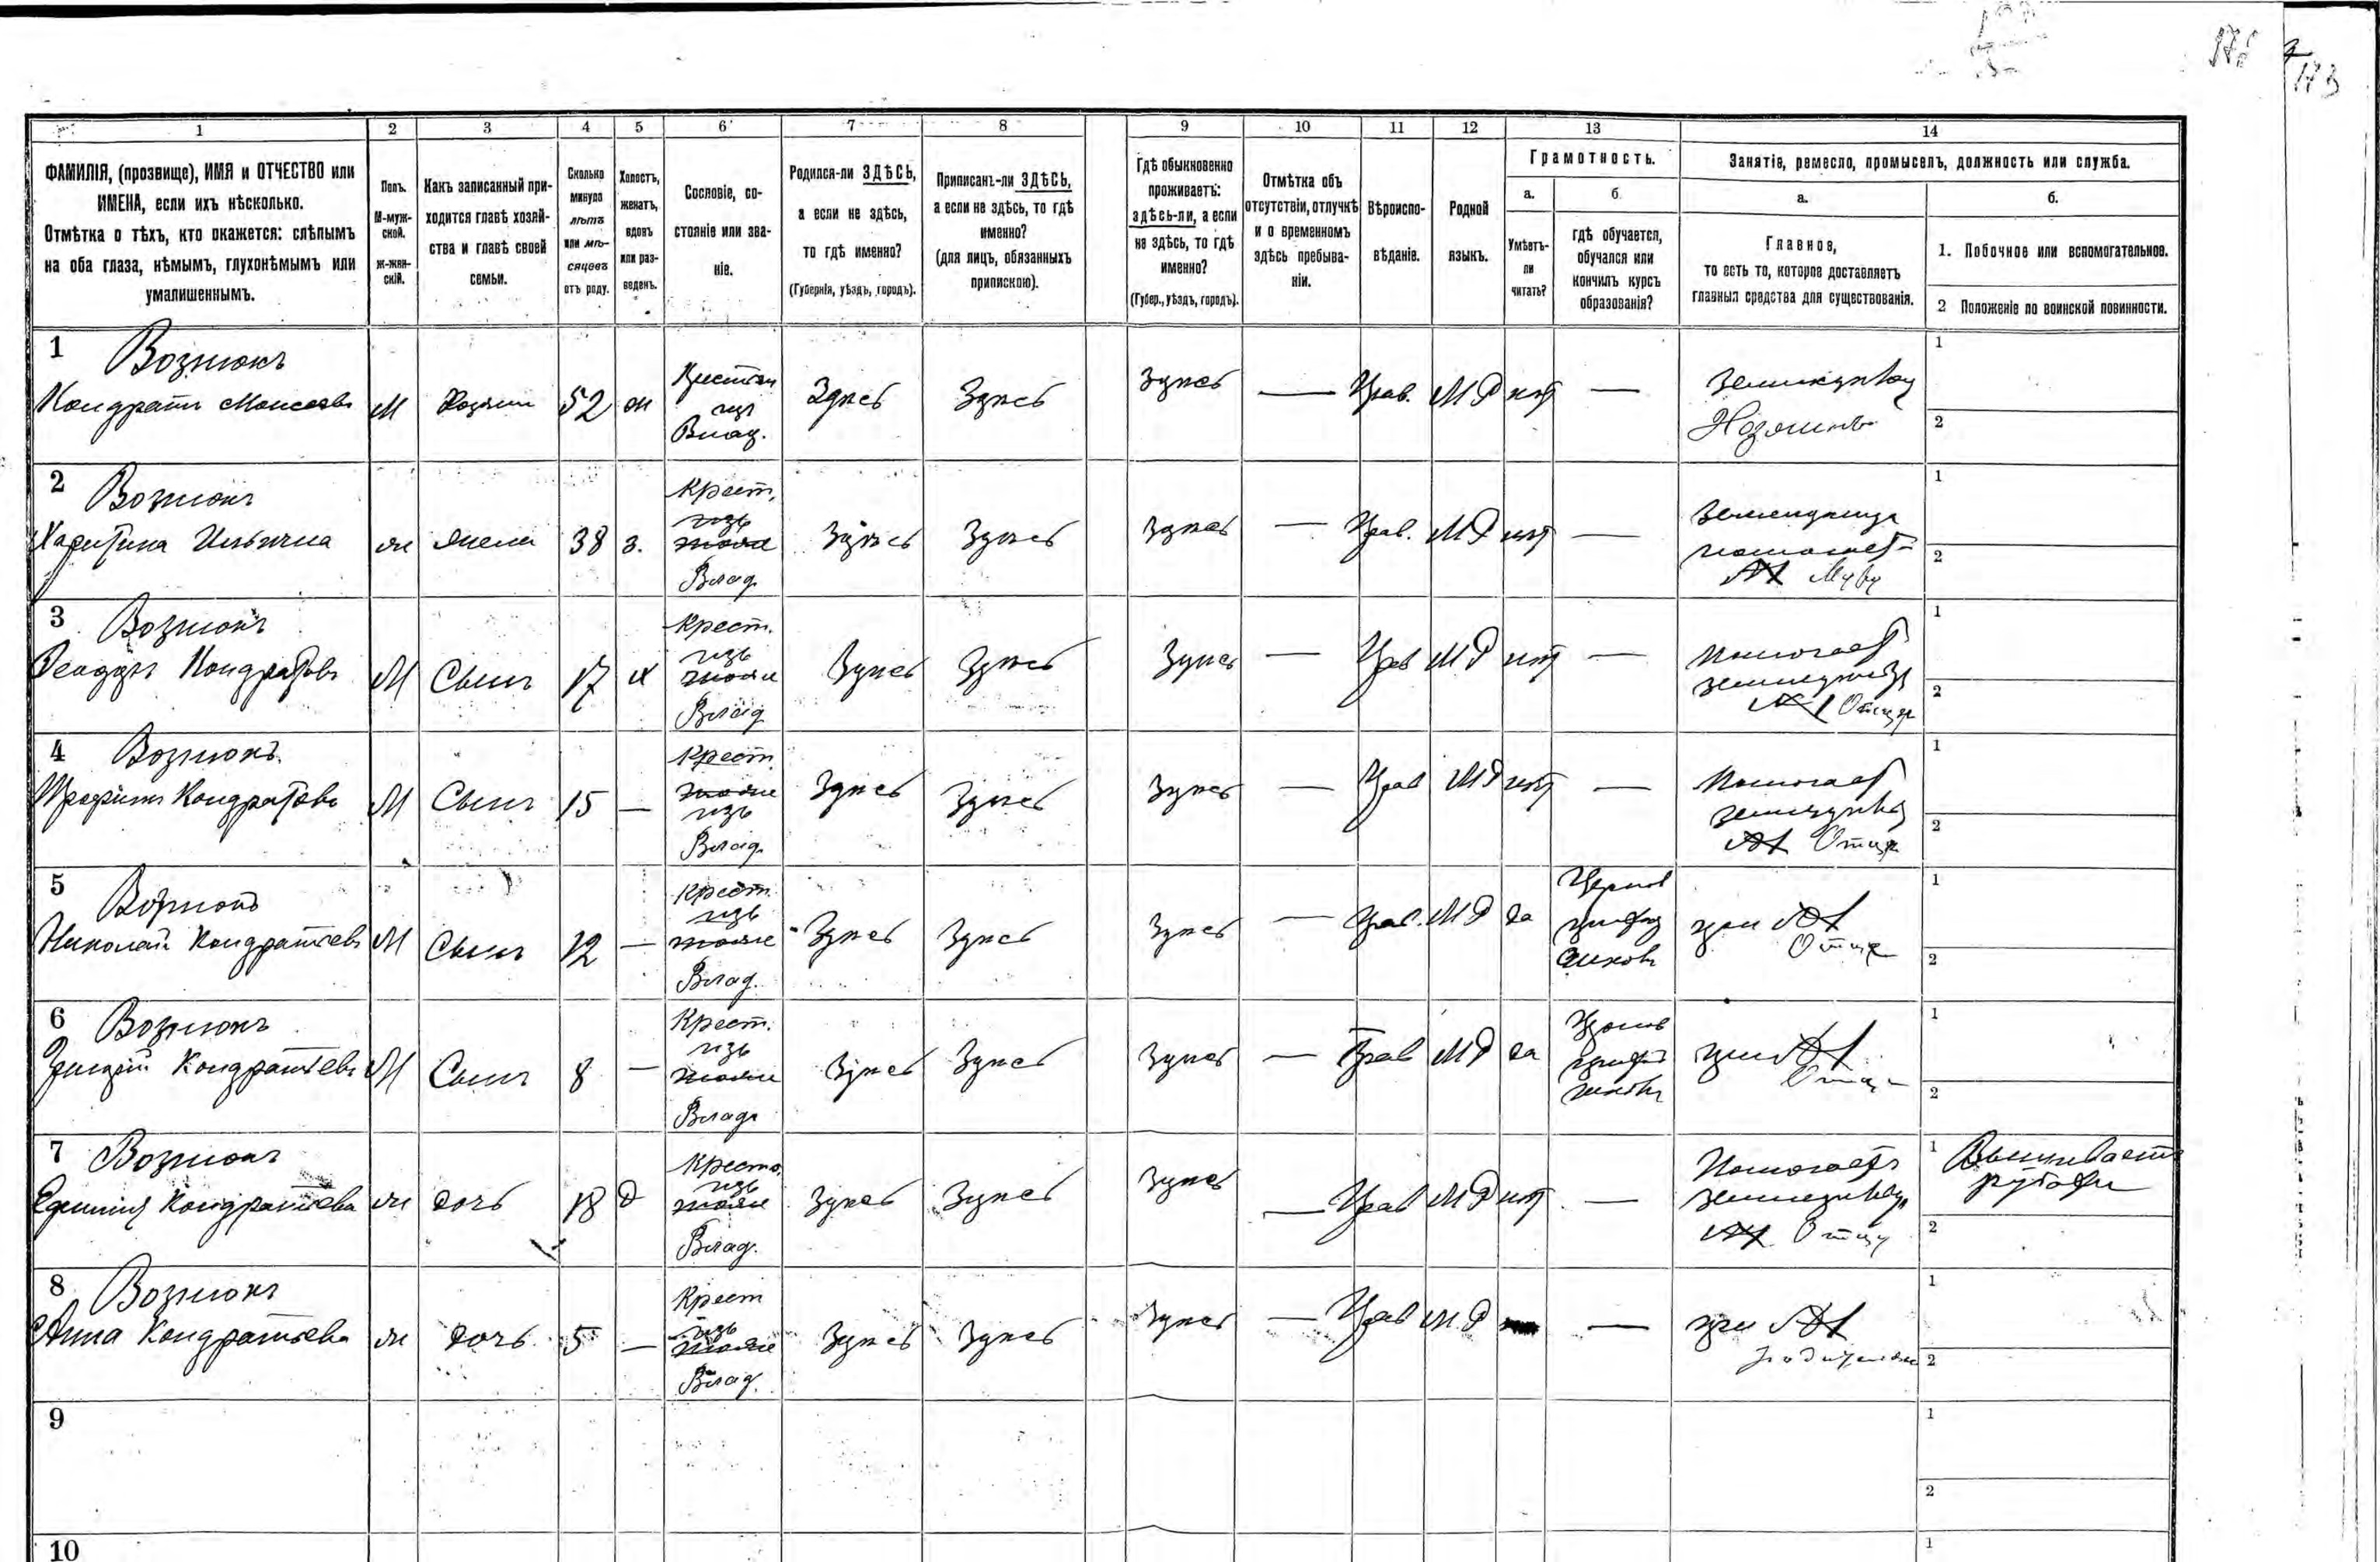 173
1
2
3
4
5
6
7
8
9
10
11
12
13
14
ФАМИЛІЯ, (прозвище), ИМЯ и ОТЧЕСТВО или
ИМЕНА, если ихъ нѣсколько.
Отмѣтка о тѣхъ, кто окажется: слѣпымъ
на оба глаза, нѣмымъ, глухонѣмымъ или
умалишеннымъ.
Полъ.
М-муж-
ской.
Ж-жен-
скій.
Какъ записанный при-
ходится главѣ хозяй-
ства и главѣ своей
семьи.
Сколько
минуло
лѣтъ
или мѣ-
сяцевъ
отъ роду.
Холостъ,
женатъ,
вдовъ
или раз-
веденъ.
Сословіе, со-
стояніе или зва-
ніе.
Родился-ли ЗДѢСЬ,
а если не здѣсь,
то гдѣ именно?
(Губернія, уѣздъ, городъ).
Приписанъ-ли ЗДѢСЬ,
а если не здѣсь, то гдѣ
именно?
(для лицъ, обязанныхъ
припискою).
Гдѣ обыкновенно
проживаетъ:
здѣсь-ли, а если
не здѣсь, то гдѣ
именно?
(Губер., уѣздъ, городъ).
Отмѣтка объ
отсутствіи, отлучкѣ
и о временномъ
здѣсь пребыва-
ніи.
Вѣроиспо-
вѣданіе.
Родной
языкъ.
Грамотность.
а.
Умѣетъ-
ли
читать?
б.
гдѣ обучается,
обучался или
кончилъ курсъ
образованія?
Занятіе, ремесло, промыселъ, должность или служба.
а.
Главное,
то есть то, которое доставляетъ
главныя средства для существованія.
б.
1. Побочное или вспомогательное.
2 Положеніе по воинской повинности.
1 Вознюкъ
Кондратъ Моисеевъ М Хозяинъ 52 ж Крестьян изъ Влад. Здѣсь Здѣсь Здѣсь — Прав. МР нѣт —
Хозяинъ
1
2
2 Вознюкъ
Харитина Ильична ж жена 38 з. Крест. изъ Влад. Здѣсь Здѣсь Здѣсь — Прав. МР нѣт —
помогает
Мужу
1
2
3 Вознюкъ
Кондратовъ М Сынъ 17 х Крест. изъ Влад Здѣсь Здѣсь Здѣсь — Прав МР нѣт —
Помогает
Отцу
1
2
4 Вознюкъ
Трофимъ Кондратовъ М Сынъ 15 — Крест. изъ Влад. Здѣсь Здѣсь Здѣсь — Прав МР нѣт —
Помогает
Отцу
1
2
5 Вознюкъ
Николай Кондратьевъ М Сынъ 12 — Крест. изъ Влад. Здѣсь Здѣсь Здѣсь — Прав. МР да
при
Отце
1
2
6 Вознюкъ
Кондратьевъ М Сынъ 8 — Крест. изъ Влад. Здѣсь Здѣсь Здѣсь — Прав МР да
при
Отце
1
2
7 Вознюкъ
Кондратьева ж дочь 18 д Крест. изъ Влад. Здѣсь Здѣсь Здѣсь — Прав МР нѣт —
Помогаетъ
Отцу
1 Вышиваетъ
2
8 Вознюкъ
Анна Кондратьева ж дочь 5 — Крест изъ Влад. Здѣсь Здѣсь Здѣсь — Прав М.Р —
при
1
2
9
1
2
10
1